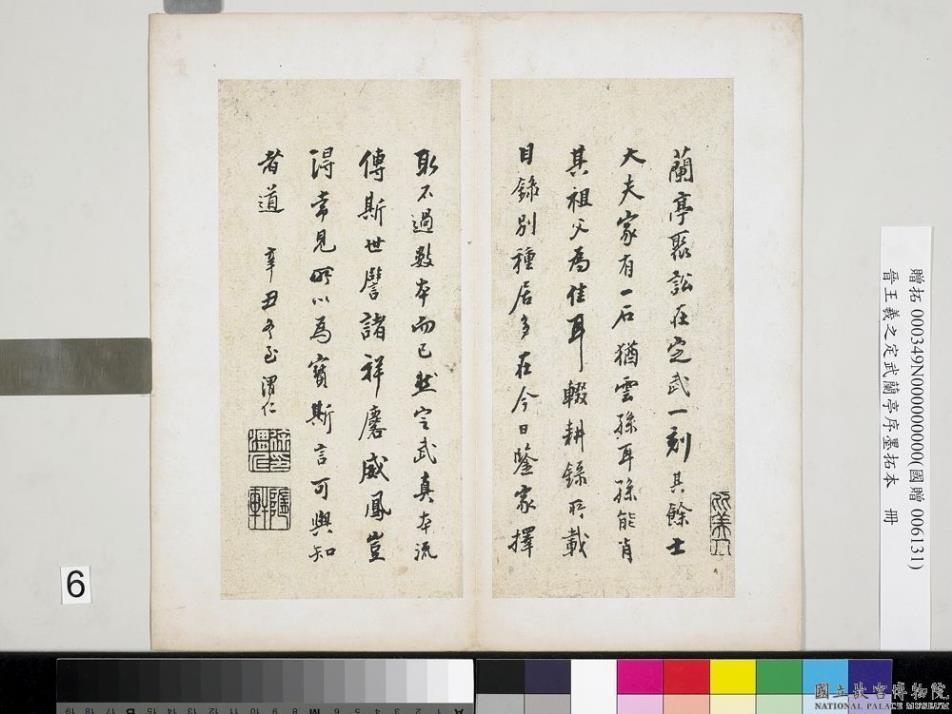 蘭亭聚訟在定武一刻其餘士
大夫家有一石猶雲孫耳孫能肖
其祖父為佳耳輟耕錄所載
目錄別種居多在今日鑒家擇
取不過數本而已然定武真本流
傳斯世譬諸祥麐威鳳豈
得常見所以為寶斯言可與知
者道 辛丑冬至渭仁
贈拓 000349N000000000(國贈 006131)
晉王羲之定武蘭亭序墨拓本 冊
6
國立故宮博物院
NATIONAL PALACE MUSEUM